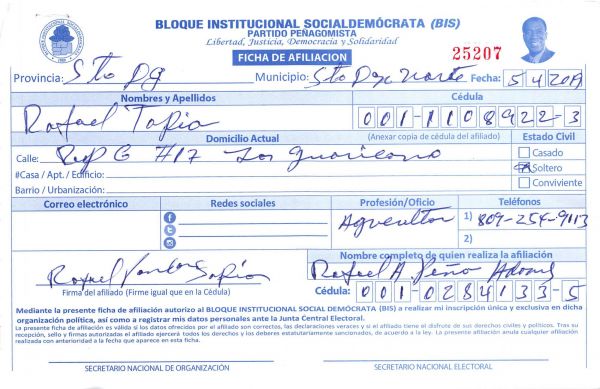 BLOQUE INSTITUCIONAL SOCIALDEMÓCRATA (BIS)
PARTIDO PEÑAGOMISTA
Libertad, Justicia, Democracia y Solidaridad
FICHA DE AFILIACION
25207
Provincia: Sto Dgo Municipio: Sto Dgo Norte Fecha: 5/4/2019
Nombres y Apellidos Cédula
Rafael Tapia 001-1108922-3
Domicilio Actual (Anexar copia de cédula del afiliado) Estado Civil
Calle: #17 Los Guaricano Casado
#Casa / Apt. / Edificio: Soltero
Barrio / Urbanización: Conviviente
Correo electrónico Redes sociales Profesión/Oficio Teléfonos
Agricultor 1) 809-254-9113
2)
Nombre completo de quien realiza la afiliación
Rafael Tapia Rafael A. Peña
Firma del afiliado (Firme igual que en la Cédula) Cédula: 001-0284133-5
Mediante la presente ficha de afiliación autorizo al BLOQUE INSTITUCIONAL SOCIAL DEMÓCRATA (BIS) a realizar mi inscripción única y exclusiva en dicha
organización política, así como a registrar mis datos personales ante la Junta Central Electoral.
La presente ficha de afiliación es válida si los datos ofrecidos por el afiliado son correctos, las declaraciones veraces y si el afiliado tiene el disfrute de sus derechos civiles y políticos. Tras su
recepción, sello y firmas autorizadas el afiliado ejercerá todos los derechos y los deberes estatutariamente sancionados, de acuerdo a la ley. La presente afiliación anula cualquier afiliación
realizada con anterioridad a la fecha que aparece en esta ficha.
SECRETARIO NACIONAL DE ORGANIZACIÓN SECRETARIO NACIONAL ELECTORAL